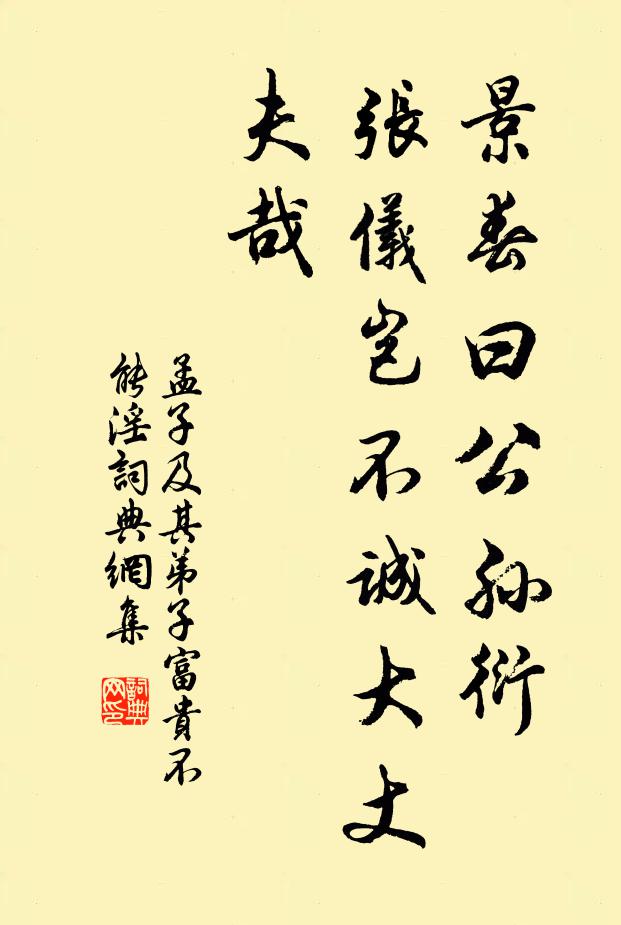 景春曰公孙衍
張儀豈不誠大丈
夫哉
孟子及其弟子富貴不
能淫詞典網集
詞典
网印